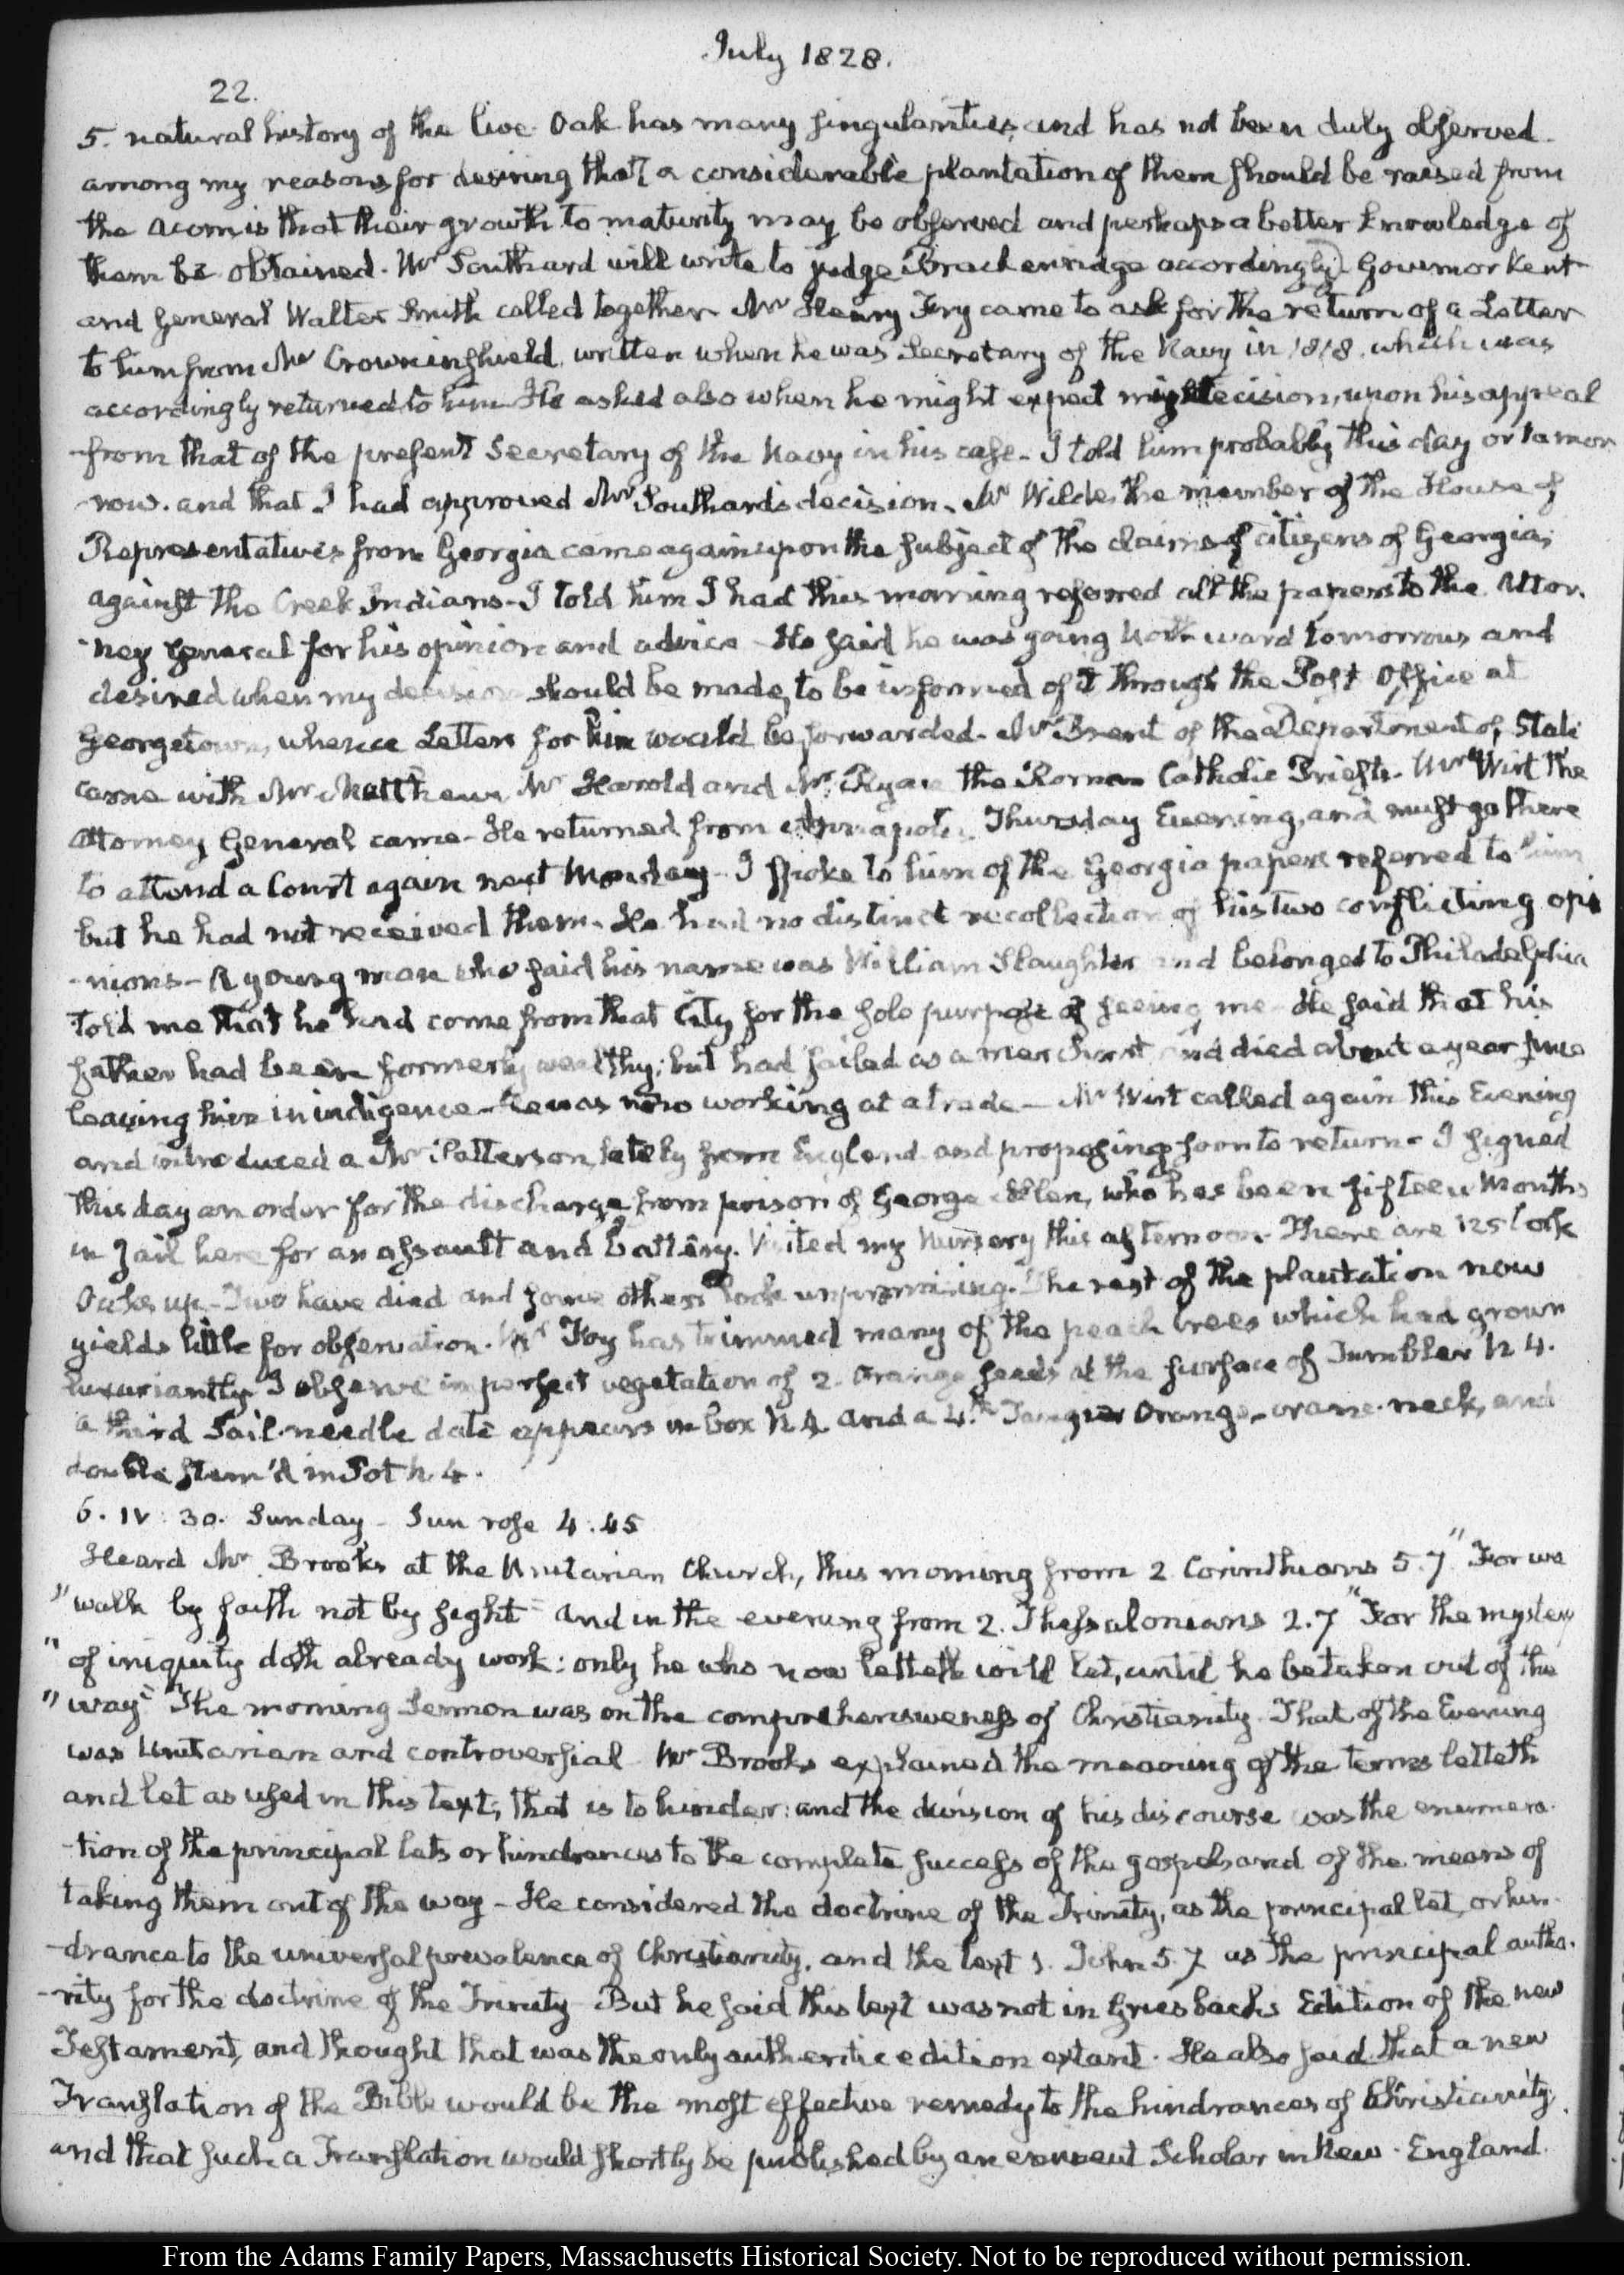 July 1828.
22.
5. natural history of the live Oak has many singularities, and has not been duly observed.
among my reasons for desiring that a considerable plantation of them should be raised from
the acorn is that their growth to maturity may be observed and perhaps a better knowledge of
them be obtained. Mr Southard will write to judge Brackenridge accordingly) Governor Kent
and General Walter Smith called together Mr Henry Fry came to ask for the return of a Letter
to him from Mr Crowninshield written when he was Secretary of the Navy in 1818. which was
accordingly returned to him He asked also when he might expect my decision, upon his appeal
from that of the present Secretary of the Navy in his case - I told him probably this day or tomor
-row. and that I had approved Mr Southard's decision. Mr Wilde, the member of the House of
Representatives from Georgia came again upon the subject of the claims of citizens of Georgia,
against the Creek Indians - I told him I had this morning referred all the papers to the Attor.
-ney General for his opinion and advice - He said he was going Northward tomorrow and
desired when my decision should be made, to be informed of it through the Post Office at
Georgetown, whence Letters for him would be forwarded. Mr Brent of the Department of State
came with Mr Matthews Mr Harold and Mr Ryan the Roman Catholic Priests. Mr Wirt the
Attorney General came - He returned from Annapolis Thursday Evening, and must go there
to attend a Court again next Monday - I spoke to him of the Georgia papers referred to him
but he had not received them. He had no distinct recollection of his two conflicting opi
-nions - A young man who said his name was William Slaughter and belonged to Philadelphia
told me that he had come from that City for the sole purpose of seeing me - He said that his
father had been formerly wealthy; but had failed as a merchant and died about a year since
leaving him in indigence - He was now working at a trade - Mr Wirt called again this Evening
and introduced a Mr Patterson, lately from England and proposing soon to return - I signed
this day an order for the discharge from prison of George Allen, who has been fifteen Months
in Jail here for an assault and battery. Visited my Nursery this afternoon. There are 125 Cork
Oaks up - Two have died and some others look unpromising. The rest of the plantation now
yields little for observation. Mr Foy has trimmed many of the peach trees which had grown
luxuriantly I observe imperfect vegetation of 2. Orange seeds at the surface of Tumbler N 4.
a third Sail-needle date appears in box N 4 and a 4.th Tangier Orange, crane-neck, and
double stem'd in Pot N. 4.
6. IV: 30. Sunday - Sun rose 4:45
Heard Mr Brooks at the Unitarian Church, this morning from 2 Corinthians 5.7 "For we
"walk by faith not by sight" and in the evening from 2. Thessalonians 2.7 "For the mystery
"of iniquity doth already work: only he who now letteth will let, until he be taken out of the
"way" The morning Sermon was on the comprehensiveness of Christianity. That of the Evening
was Unitarian and controversial Mr Brooks explained the meaning of the terms letteth
and let as used in this text; that is to hinder: and the division of his discourse was the enumera.
-tion of the principal lets or hindrances to the complete success of the gospel and of the means of
taking them out of the way - He considered the doctrine of the Trinity, as the principal let, or hin-
-drance to the universal prevalence of Christianity, and the text 1. John 5.7 as the principal autho.
-rity for the doctrine of the Trinity - But he said this text was not in Griesbach's Edition of the new
Testament, and thought that was the only authentic edition extant. He also said that a new
Translation of the Bible would be the most effective remedy to the hindrances of Christianity,
and that such a Translation would shortly be published by an eminent Scholar in New-England.
From the Adams Family Papers, Massachusetts Historical Society. Not to be reproduced without permission.